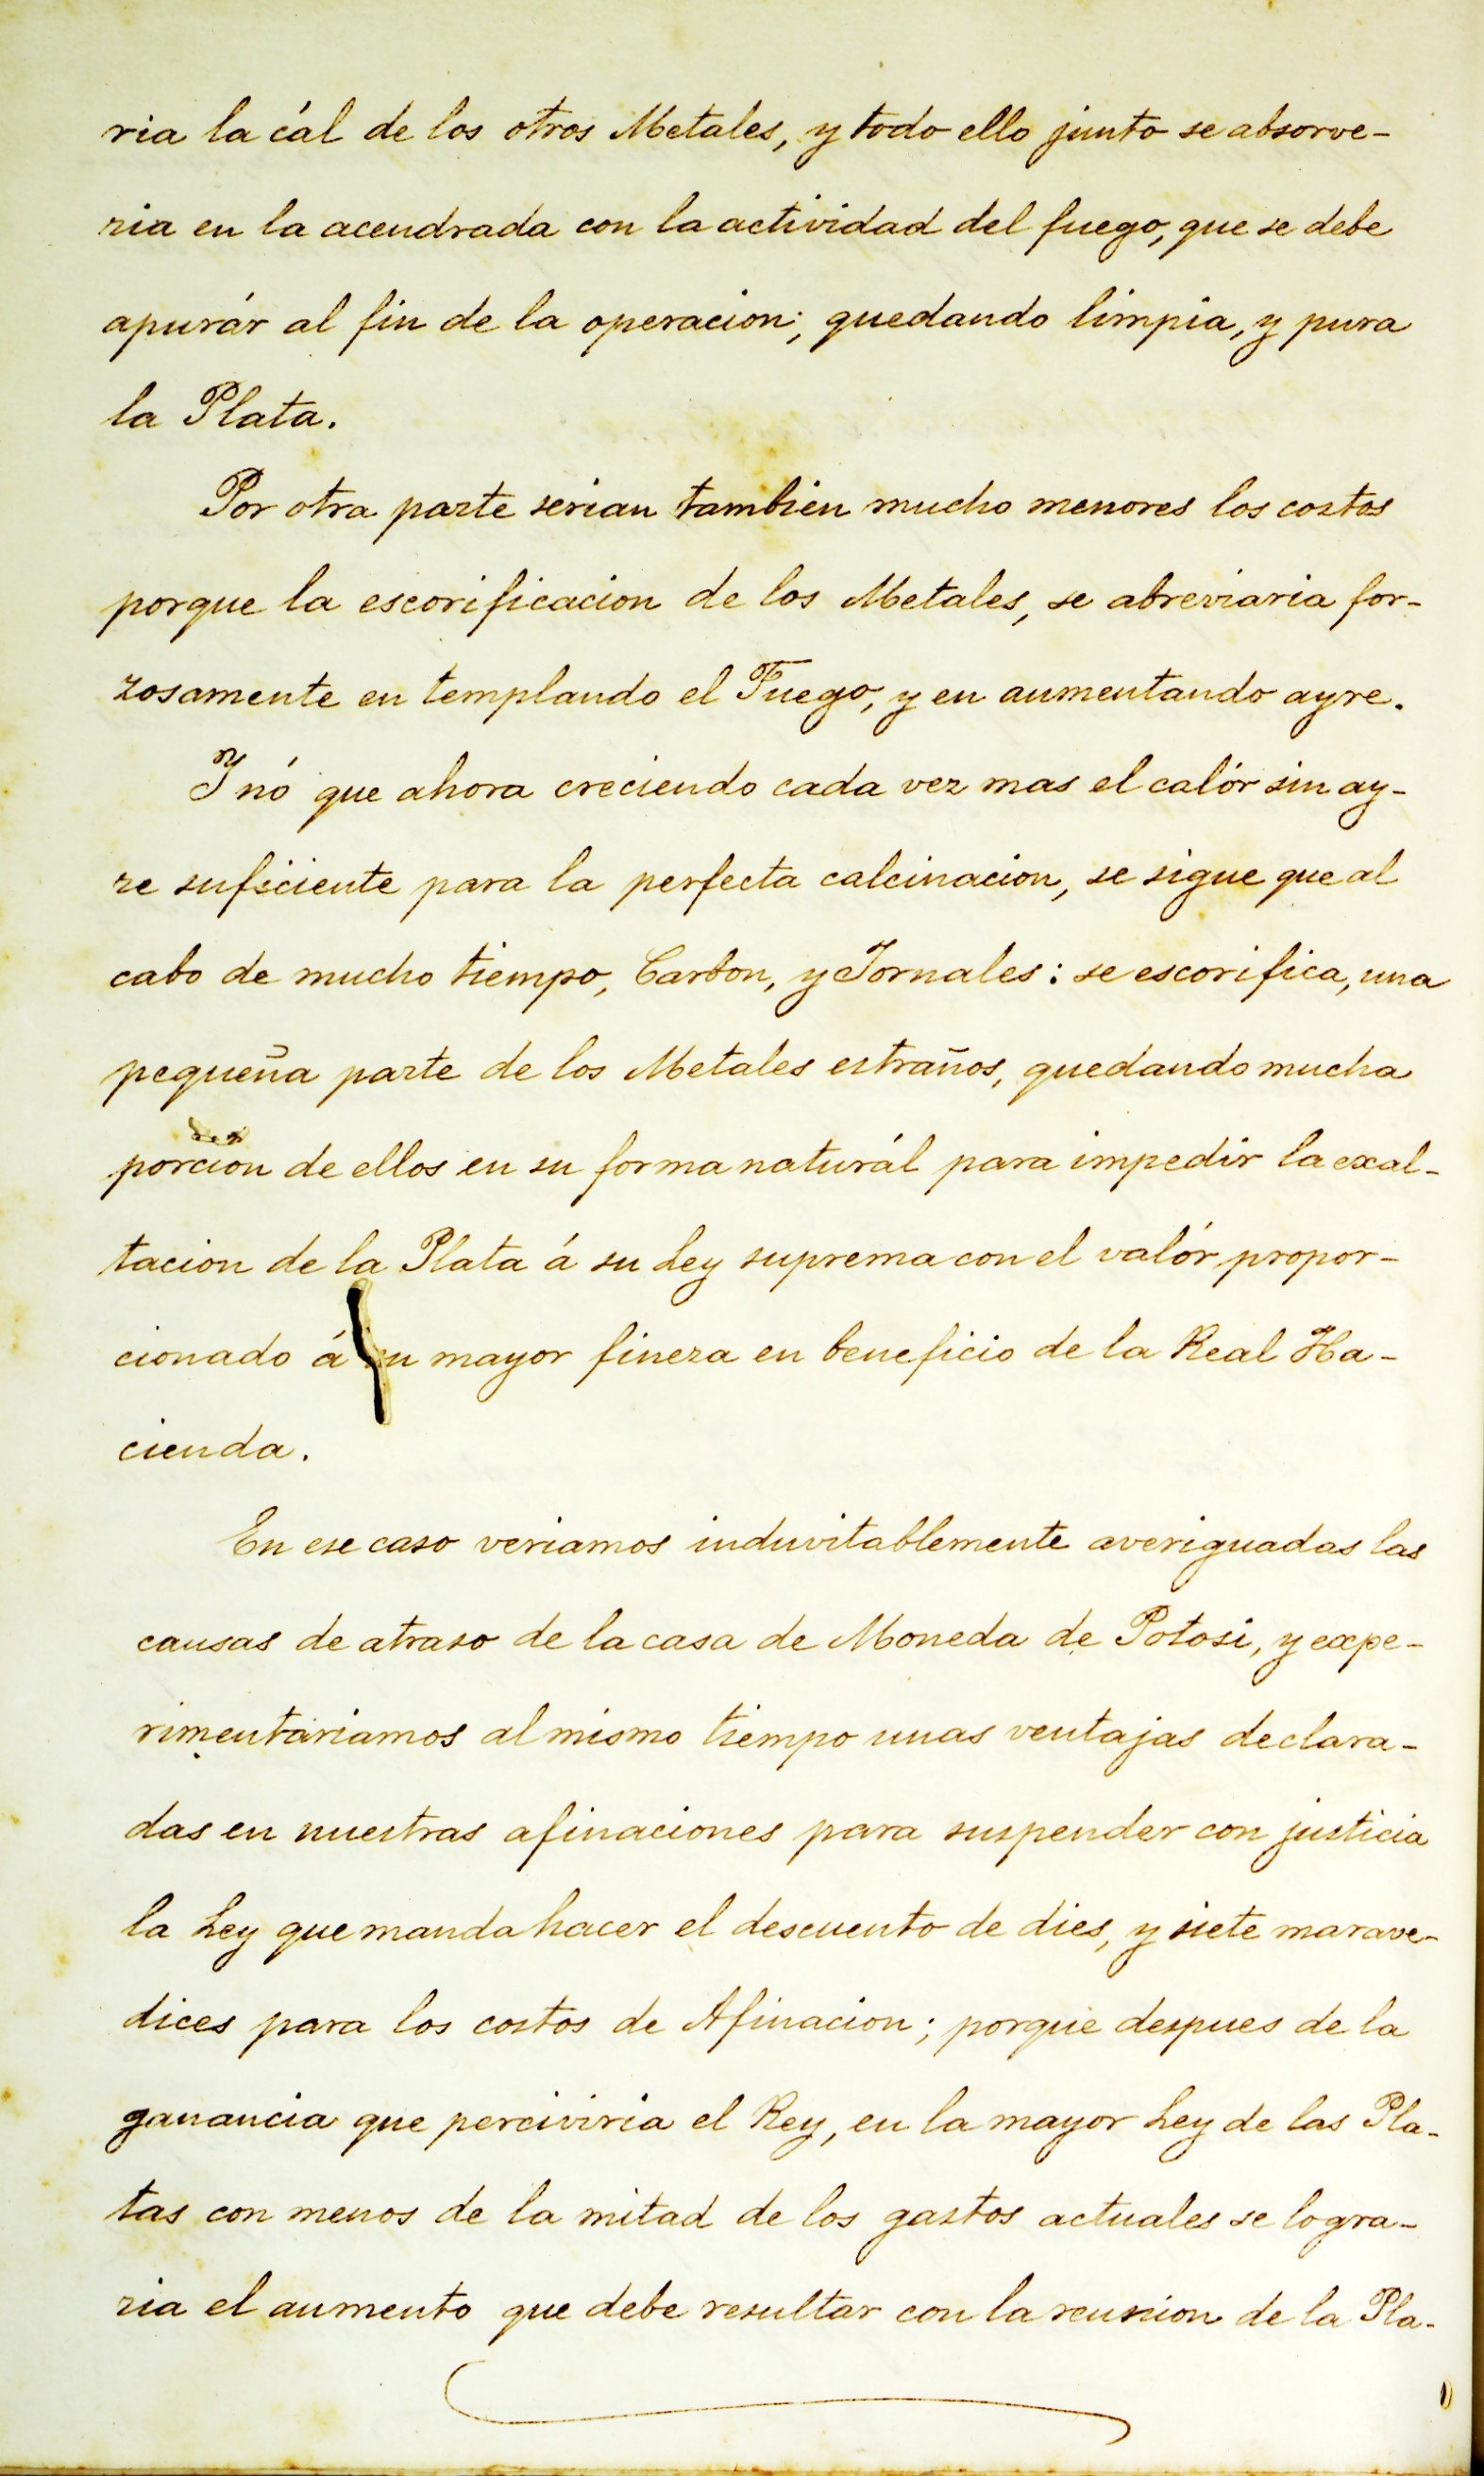 ria la cál de los otros Metales, y todo ello junto se absorve-
ria en la acendrada con la actividad del fuego, que se debe
apurár al fin de la operacion; quedando limpia, y pura
la Plata.
Por otra parte serian tambien mucho menores los costos
porque la escorificacion de los Metales, se abreviaria for-
zosamente en templando el Fuego, y en aumentando ayre.
Y nó que ahora creciendo cada vez mas el calór sin ay-
re suficiente para la perfecta calcinacion, se sigue que al
cabo de mucho tiempo, Carbon, y Jornales: se escorifica, una
pequeña parte de los Metales estraños, quedando mucha
porcion de ellos en su forma naturál para impedir la exal-
tacion de la Plata á su Ley suprema con el valór propor-
cionado á su mayor fineza en beneficio de la Real Ha-
cienda.
En ese caso veriamos induvitablemente averiguadas las
causas de atraso de la casa de Moneda de Potosi, y expe-
rimentariamos al mismo tiempo unas ventajas declara-
das en nuestras afinaciones para suspender con justicia
la Ley que manda hacer el descuento de dies, y siete marave-
dices para los costos de Afinacion; porque despues de la
ganancia que perciviria el Rey, en la mayor Ley de las Pla-
tas con menos de la mitad de los gastos actuales se logra-
ria el aumento que debe resultar con la reunion de la Pla-